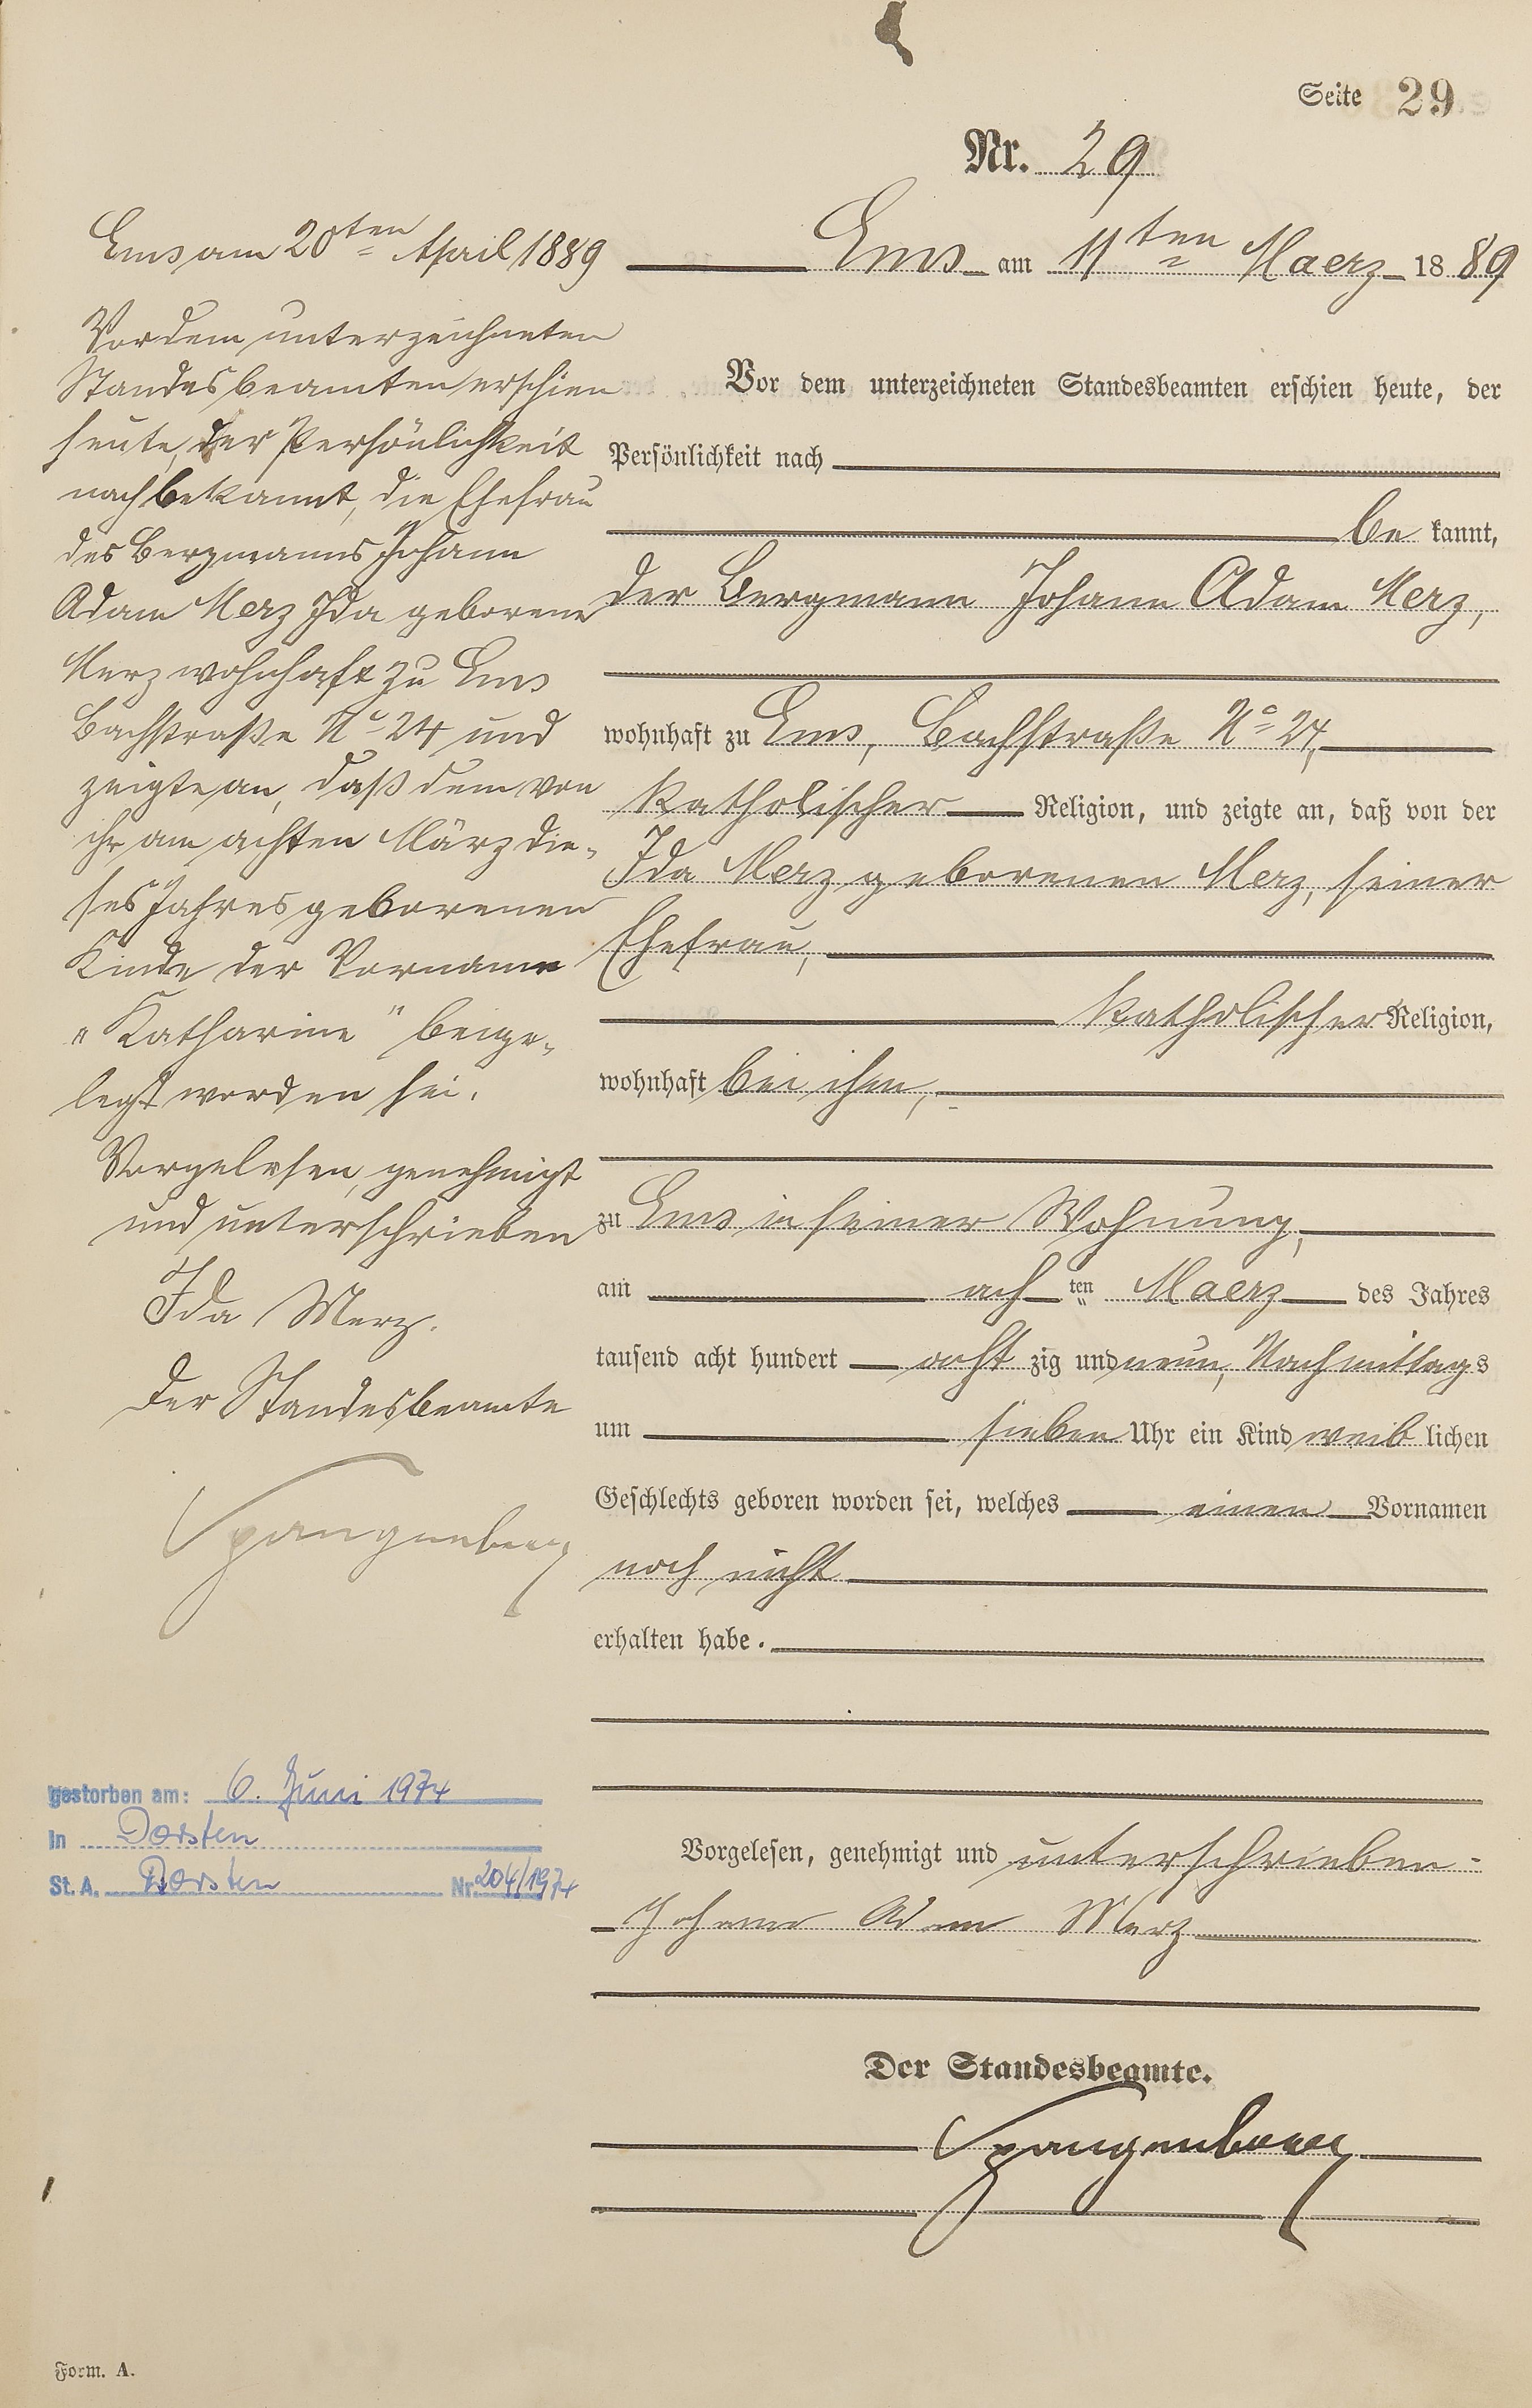 Seite 29
Nr. 29
Ems am 11ten Maerz 1889
Vor dem unterzeichneten Standesbeamten erschien heute, der
Persönlichkeit nach
be kannt,
der Bergmann Johann Adam Merz,
wohnhaft zu Ems, Bachstraße No 24,
katholischer Religion, und zeigte an, daß von der
Ida Merz geborenen Merz, seiner
Ehefrau,
katholischer Religion,
wohnhaft bei ihm,
zu Ems in seiner Wohnung,
am achten Maerz des Jahres
tausend acht hundert acht zig und neun, Nachmittags
um sieben Uhr ein Kind weib lichen
Geschlechts geboren worden sei, welches einen Vornamen
noch nicht
erhalten habe.
Vorgelesen, genehmigt und unterschrieben
Johann Adam Merz
Der Standesbeamte.
Spangenberg
Ems am 20ten April 1889
Vor dem unterzeichneten
Standesbeamten erschien
heute, der Persönlichkeit
nach bekannt, die Ehefrau
des Bergmanns Johann
Adam Merz Ida geborene
Merz wohnhaft zu Ems
Bachstraße No 24 und
zeigte an, daß dem von
ihr am achten März die-
ses Jahres geborenen
Kinde der Vorname
"Katharine" beige-
legt worden sei.
Vorgelesen, genehmigt
und unterschrieben
Ida Merz.
Der Standesbeamte
Spangenberg
gestorben am: 6. Juni 1974
in Dorsten
St. A. Dorsten Nr. 204/1974
Form. A.